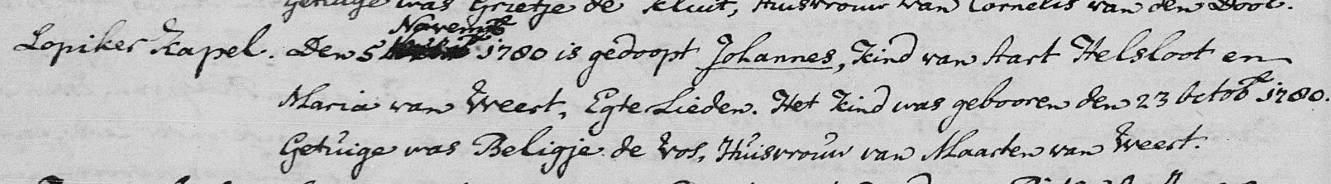 Getuige was Grietje de Kluit, Huisvrouw van Cornelis van den Dool.
Novemb
Lopiker Kapel. Den 5 1780 is gedoopt Johannes, Kind van Aart Helsloot en
Maria van Weert, Egte Lieden. Het Kind was gebooren den 23 Octobr 1780.
Getuige was Beligje de Vos, Huisvrouw van Maarten van Weert.